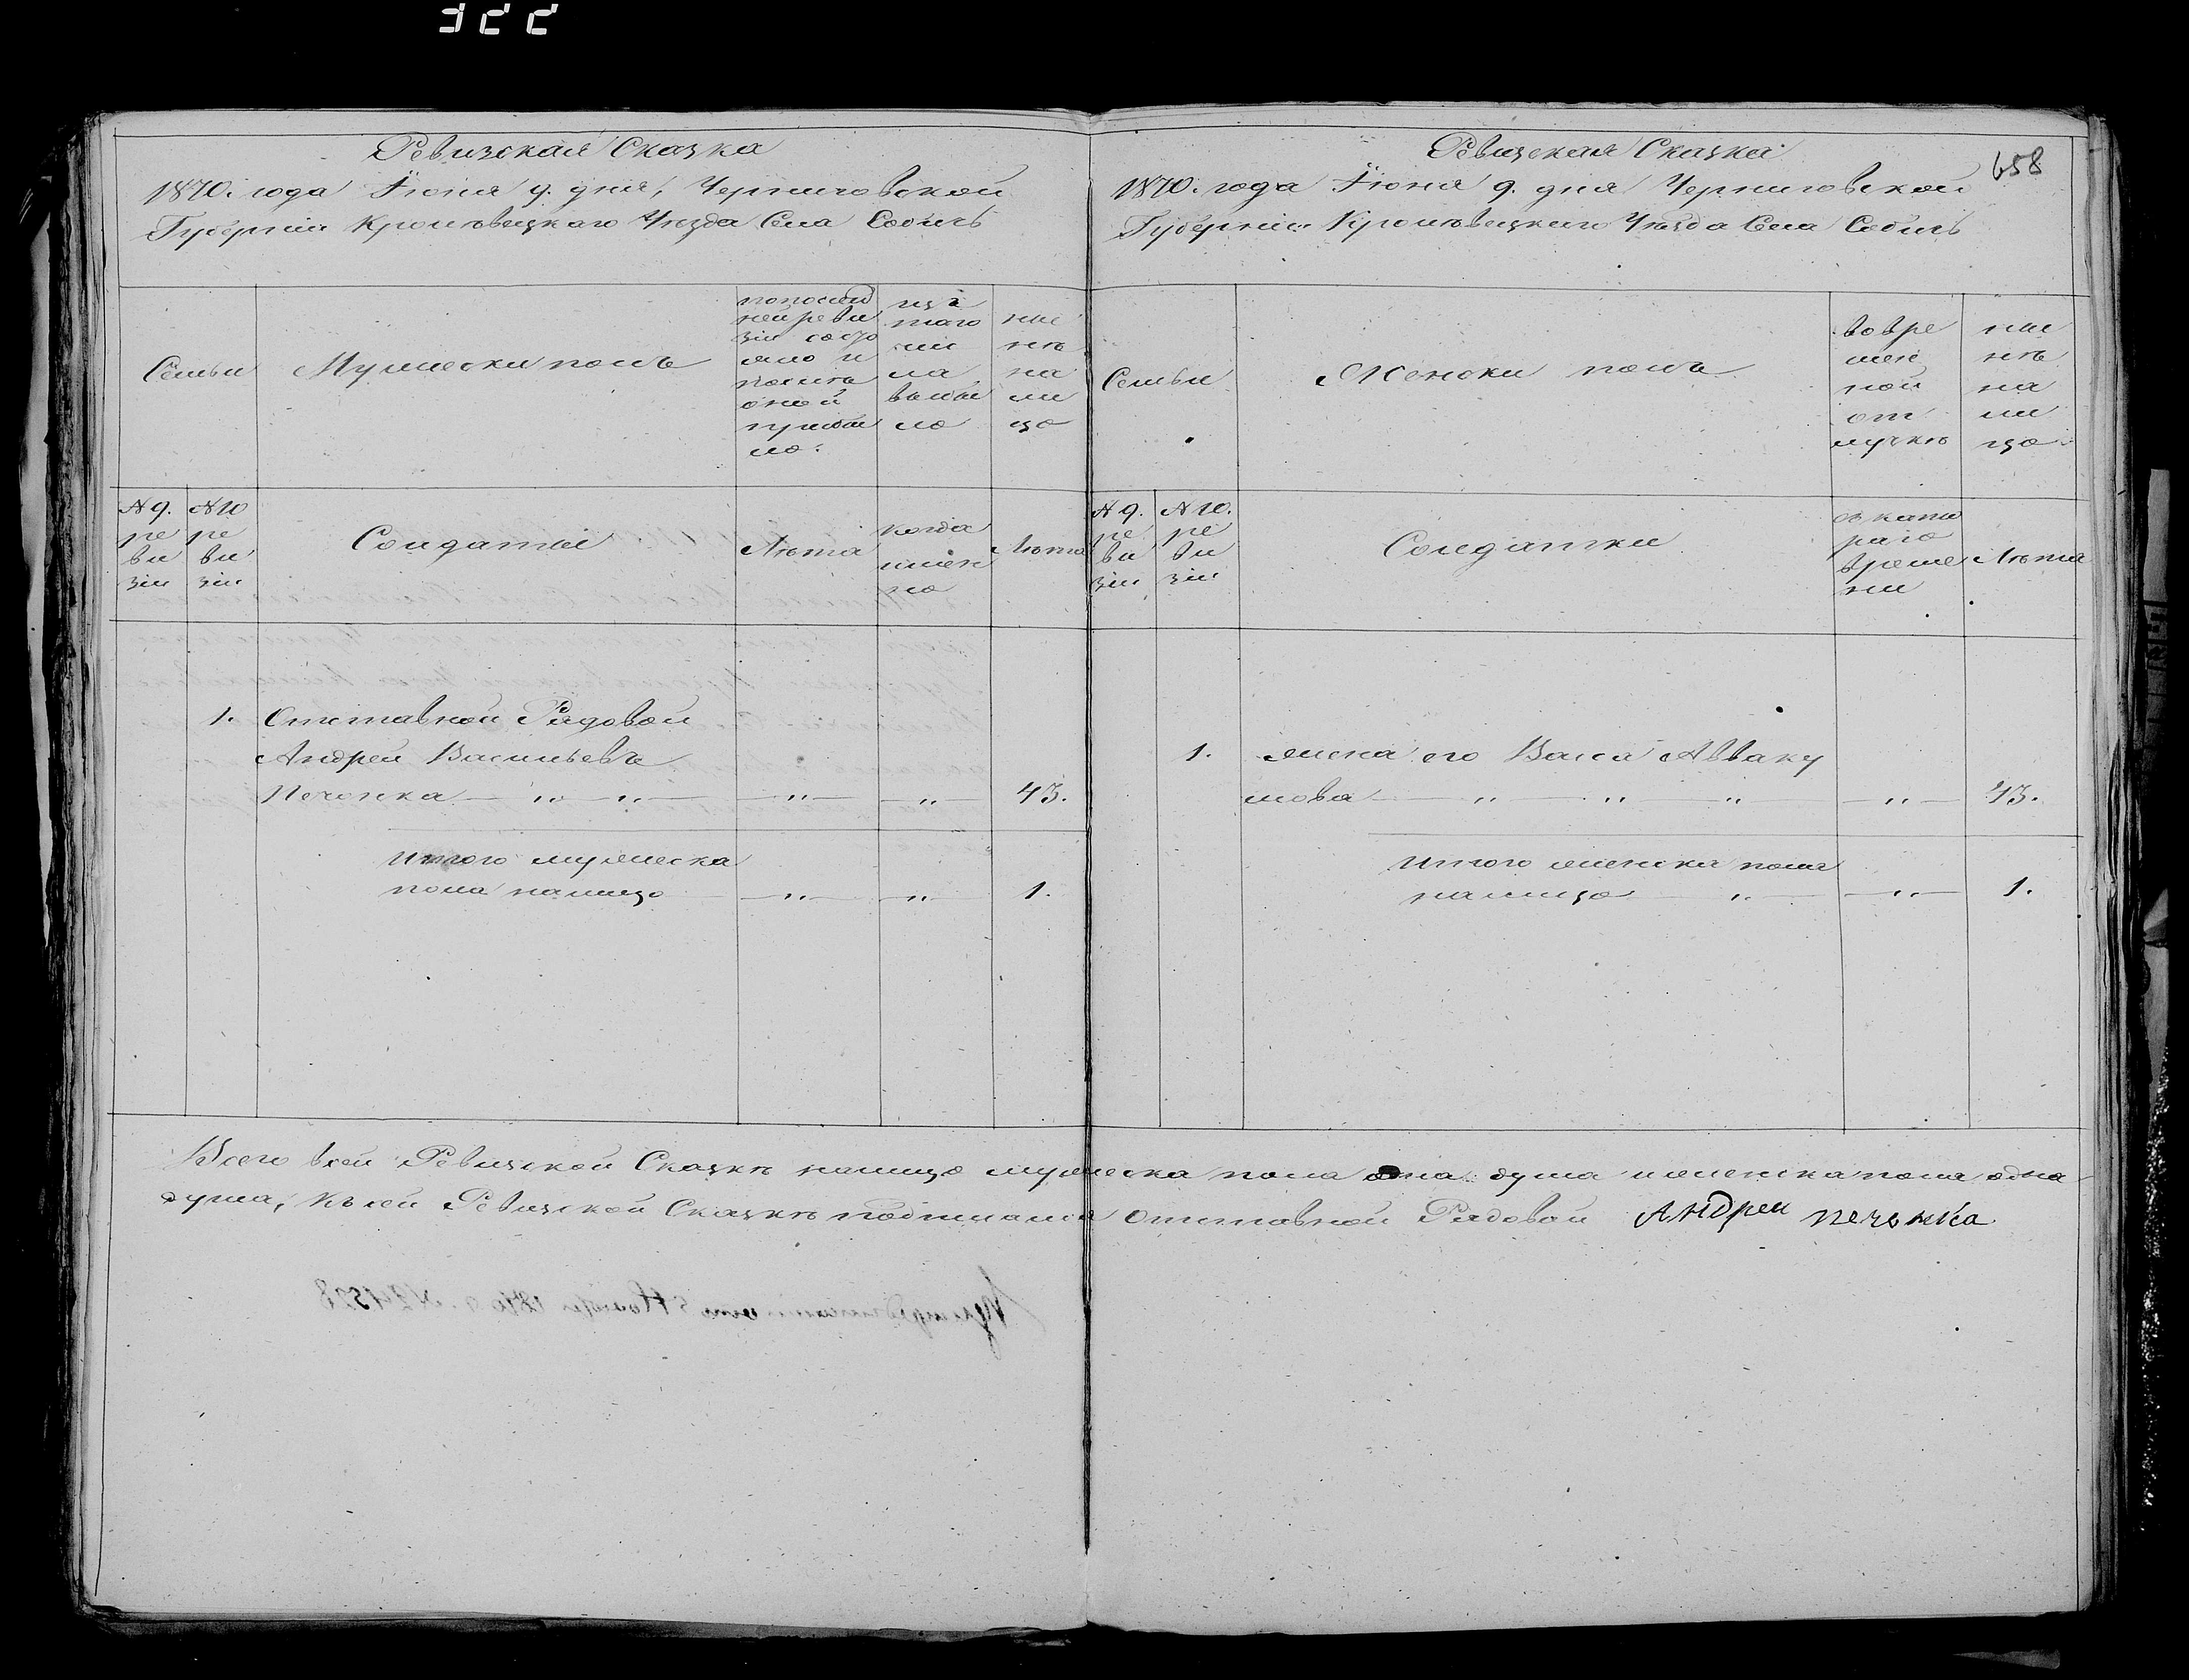 322
Ревизская Сказка
1870. года Іюня 9. дня, Черниговской
Губерніи Кролѣвецкаго Уѣзда Села Собичь
Семьи
Мужески полъ
попослѣд
ней реви
зіи состо
яло и
послѣ
оной
прибы
ло.
изъ
таго
чи
сла
выбы
ло
ны
нѣ
на
ли
цо
№ 9.
ре
ви
зіи
№ 10
ре
ви
зіи
Солдаты
Лѣта
когда
имен
но
Лѣта
1. Отставной Рядовой
Андрей Васильевъ
Печонка — „ — „ — — „ — — „ — 43.
Итого мужеска
пола налицо — „ — — „ — 1.
Ревизская Сказка
658
1870. года Іюня 9. дня Черниговской
Губерніи Кролѣвецкаго Уѣзда Села Собичь
Семьи
Женски полъ
вовре
мен
ной
от
лучкѣ
ны
нѣ
на
ли
цо
№ 9.
ре
ви
зіи
№ 10.
ре
ви
зіи
Солдатки
съ кото
раго
време
ни
Лѣта
1. жена его Васса Аввaку
мова — „ — „ — „ — — „ — 43.
Итого женска пола
налицо — „ — — „ — 1.
Всего всей Ревизской Сказкѣ налицо мужеска пола одна душа и женска пола одна
душа, Къ сей Ревизской Сказкѣ подписался Отставной Рядовой Андреи печонка